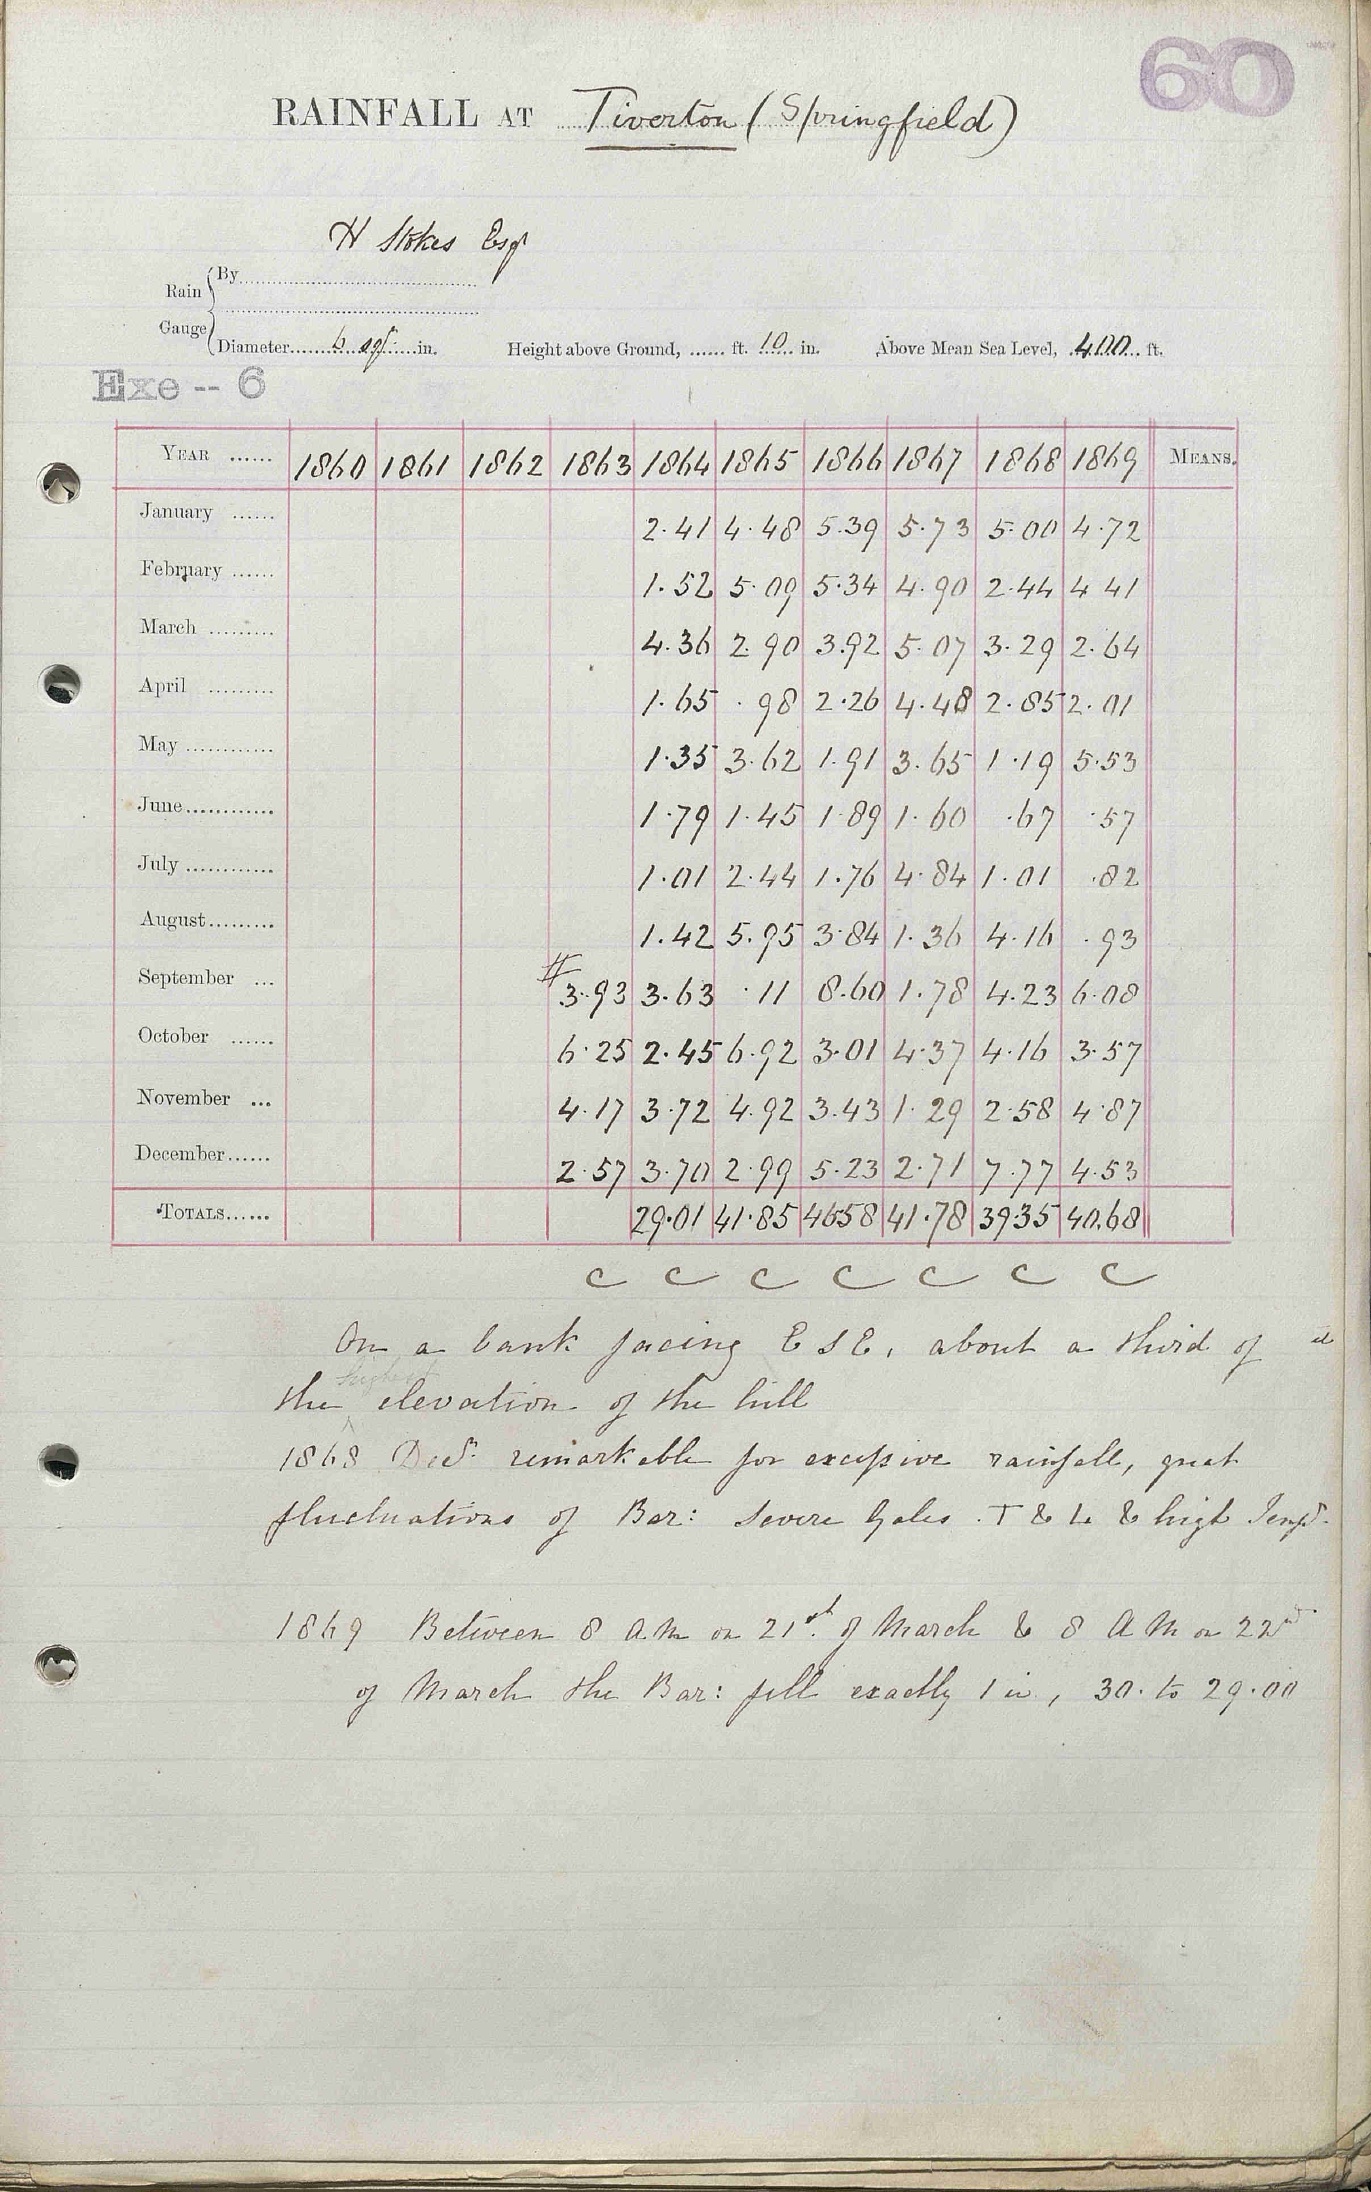 60
RAINFALL AT Tiverton (Springfield)
H Stokes Esqr
Rain Gauge { By
Diameter 6 in. Height above Ground, ...... ft. 10 in. Above Mean Sea Level, 400 ft.
Exe -- 6
YEAR ...... 1860 1861 1862 1863 1864 1865 1866 1867 1868 1869 MEANS.
January ...... 2.41 4.48 5.39 5.73 5.00 4.72
February ...... 1.52 5.09 5.34 4.90 2.44 4 41
March ......... 4.36 2.90 3.92 5.07 3.29 2.64
April ......... 1.65 .98 2.26 4.48 2.85 2.01
May ............ 1.35 3.62 1.91 3.65 1.19 5.53
June............ 1.79 1.45 1.89 1.60 .67 .57
July ............ 1.01 2.44 1.76 4.84 1.01 .82
August......... 1.42 5.95 3.84 1.36 4.16 .93
September ... # 3.93 3.63 .11 8.60 1.78 4.23 6.08
October ...... 6.25 2.45 6.92 3.01 4.37 4.16 3.57
November ... 4.17 3.72 4.92 3.43 1.29 2.58 4.87
December...... 2.57 3.70 2.99 5.23 2.71 7.77 4.53
TOTALS...... 29.01 41.85 4658 41.78 3935 40.68
c c c c c c c
On a bank facing E S E, about a third of
the highest elevation of the hill
1868 Decr. remarkable for excessive rainfall, great
fluctuations of Bar: Severe Gales. T & L & high Tempr.
1869 Between 8 A M on 21st. of March & 8 A M on 22nd
of March the Bar: fell exactly 1 in, 30. to 29.00